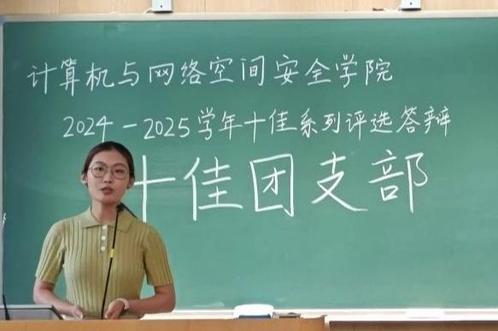 计算机与网络空间安全学院
2024-2025学年十佳系列评选答辩
十佳团支部